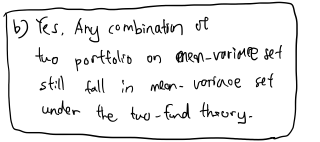 b) Yes. Any combination of
two portfolio on mean-variance set
still fall in mean-variance set
under the two-fund theory.